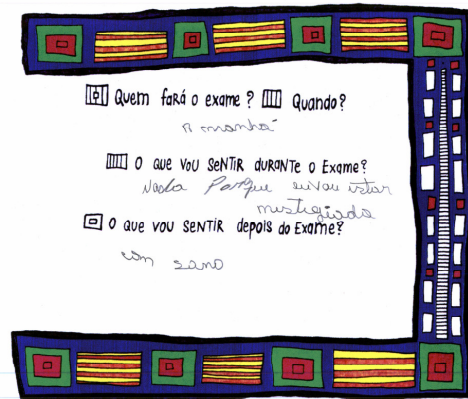 Quem fará o exame? Quando?
a manhã
O que vou sentir durante o Exame?
Nada Porque eu vou estar
mistigiada
O que vou sentir depois do Exame?
com sano